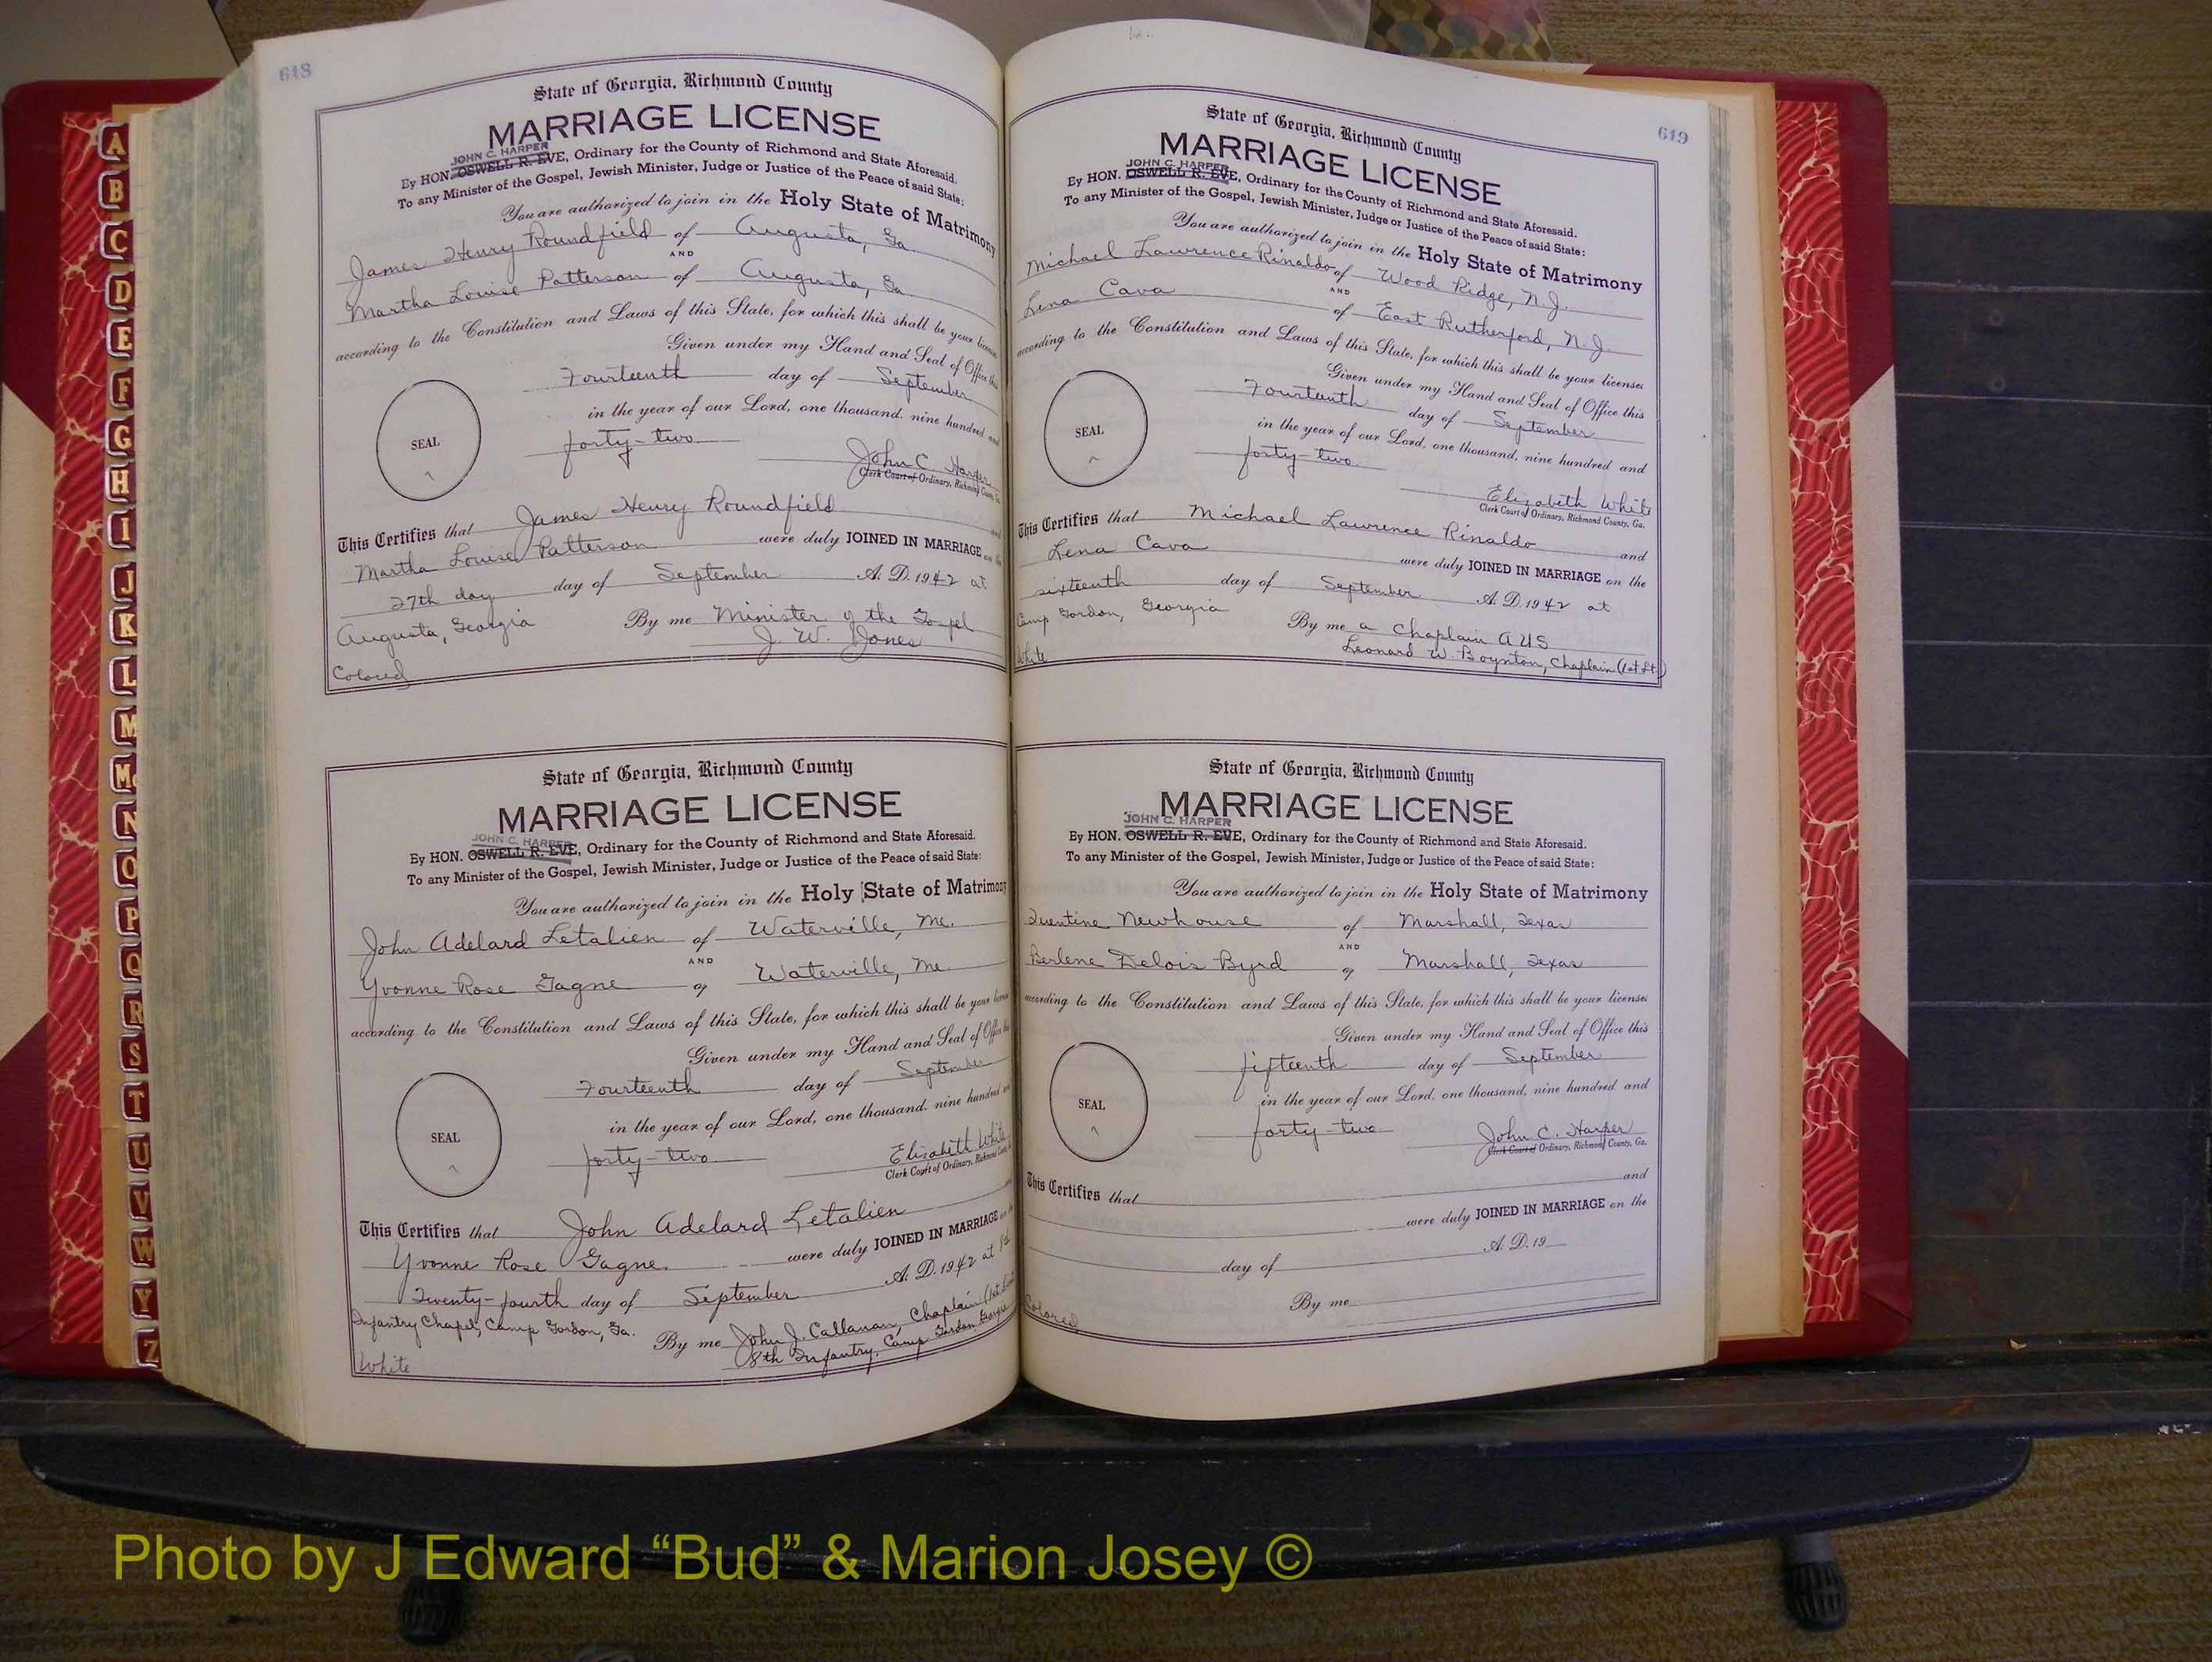 618
State of Georgia, Richmond County
MARRIAGE LICENSE
JOHN C. HARPER
By HON. OSWELL R. EVE, Ordinary for the County of Richmond and State Aforesaid.
To any Minister of the Gospel, Jewish Minister, Judge or Justice of the Peace of said State:
You are authorized to join in the Holy State of Matrimony
James Henry Roundfield of Augusta, Ga.
AND
Martha Louise Patterson of Augusta, Ga.
according to the Constitution and Laws of this State, for which this shall be your license
Given under my Hand and Seal of Office this
Fourteenth day of September
in the year of our Lord, one thousand, nine hundred and
forty-two
SEAL
John C. Harper
Clerk Court of Ordinary, Richmond County, Ga.
This Certifies that James Henry Roundfield and
Martha Louise Patterson were duly JOINED IN MARRIAGE on the
27th day day of September A. D. 1942 at
Augusta, Georgia By me Minister of the Gospel
J. W. Jones
Colored
State of Georgia, Richmond County
MARRIAGE LICENSE
JOHN C. HARPER
By HON. OSWELL R. EVE, Ordinary for the County of Richmond and State Aforesaid.
To any Minister of the Gospel, Jewish Minister, Judge or Justice of the Peace of said State:
You are authorized to join in the Holy State of Matrimony
John Adelard Letalien of Waterville, Me.
AND
Yvonne Rose Gagne of Waterville, Me.
according to the Constitution and Laws of this State, for which this shall be your
Given under my Hand and Seal of Office
Fourteenth day of September
in the year of our Lord, one thousand, nine hundred
forty-two
SEAL
Elizabeth White
Clerk Court of Ordinary, Richmond
This Certifies that John Adelard Letalien
Yvonne Rose Gagne. were duly JOINED IN MARRIAGE
Twenty-fourth day of September A. D. 1942 at 8th
Infantry Chapel, Camp Gordon, Ga. By me John J. Callanan, Chaplain
8th Infantry, Camp Gordon, Georgia
White
619
State of Georgia, Richmond County
MARRIAGE LICENSE
JOHN C. HARPER
By HON. OSWELL R. EVE, Ordinary for the County of Richmond and State Aforesaid.
To any Minister of the Gospel, Jewish Minister, Judge or Justice of the Peace of said State:
You are authorized to join in the Holy State of Matrimony
Michael Lawrence Rinaldo of Wood Ridge, N.J.
AND
Lena Cava of East Rutherford, N.J.
according to the Constitution and Laws of this State, for which this shall be your licenses
Given under my Hand and Seal of Office this
Fourteenth day of September
in the year of our Lord, one thousand, nine hundred and
forty-two
SEAL
Elizabeth White
Clerk Court of Ordinary, Richmond County, Ga.
This Certifies that Michael Lawrence Rinaldo and
Lena Cava were duly JOINED IN MARRIAGE on the
sixteenth day of September A. D. 1942 at
Camp Gordon, Georgia By me a Chaplain AUS
Leonard W. Boynton, Chaplain (1st Lt.)
White
State of Georgia, Richmond County
MARRIAGE LICENSE
JOHN C. HARPER
By HON. OSWELL R. EVE, Ordinary for the County of Richmond and State Aforesaid.
To any Minister of the Gospel, Jewish Minister, Judge or Justice of the Peace of said State:
You are authorized to join in the Holy State of Matrimony
Quentine Newhouse of Marshall, Texas
AND
Berlene Delois Byrd of Marshall, Texas
according to the Constitution and Laws of this State, for which this shall be your licenses
Given under my Hand and Seal of Office this
fifteenth day of September
in the year of our Lord, one thousand, nine hundred and
forty-two
SEAL
John C. Harper
Clerk Court of Ordinary, Richmond County, Ga.
This Certifies that and
were duly JOINED IN MARRIAGE on the
day of A. D. 19
By me
Colored
A
B
C
D
E
F
G
H
I
J
K
L
M
Mc
N
O
P
Q
R
S
T
U
V
W
Y
Z
Photo by J Edward “Bud” & Marion Josey ©